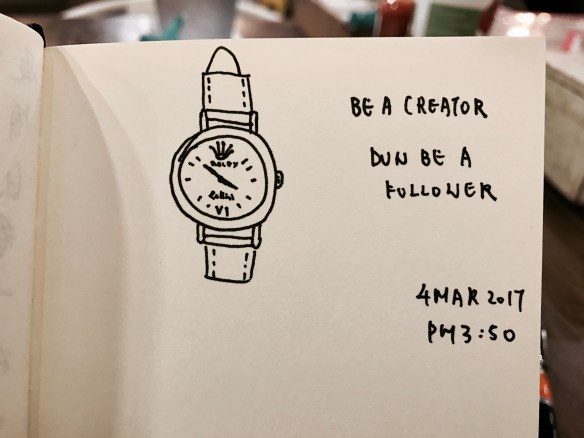 ROLEX
Cellini
VI
BE A CREATOR
DUN BE A
FOLLOWER
4 MAR 2017
PM 3:50